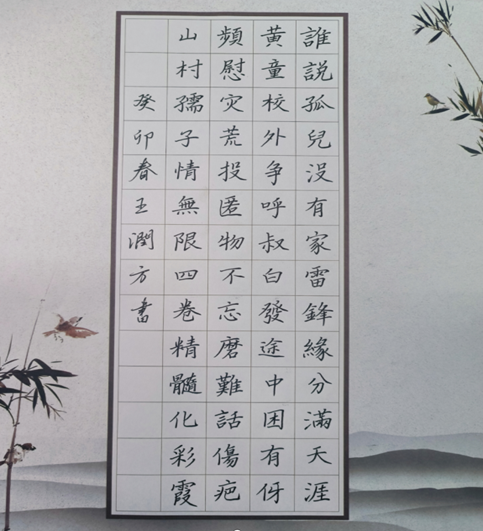 誰説孤兒没有家雷鋒緣分滿天涯
黄童校外争呼叔白發途中困有伢
頻慰灾荒投匿物不忘磨難話傷疤
山村孺子情無限四卷精髓化彩霞
癸卯春王潤方書